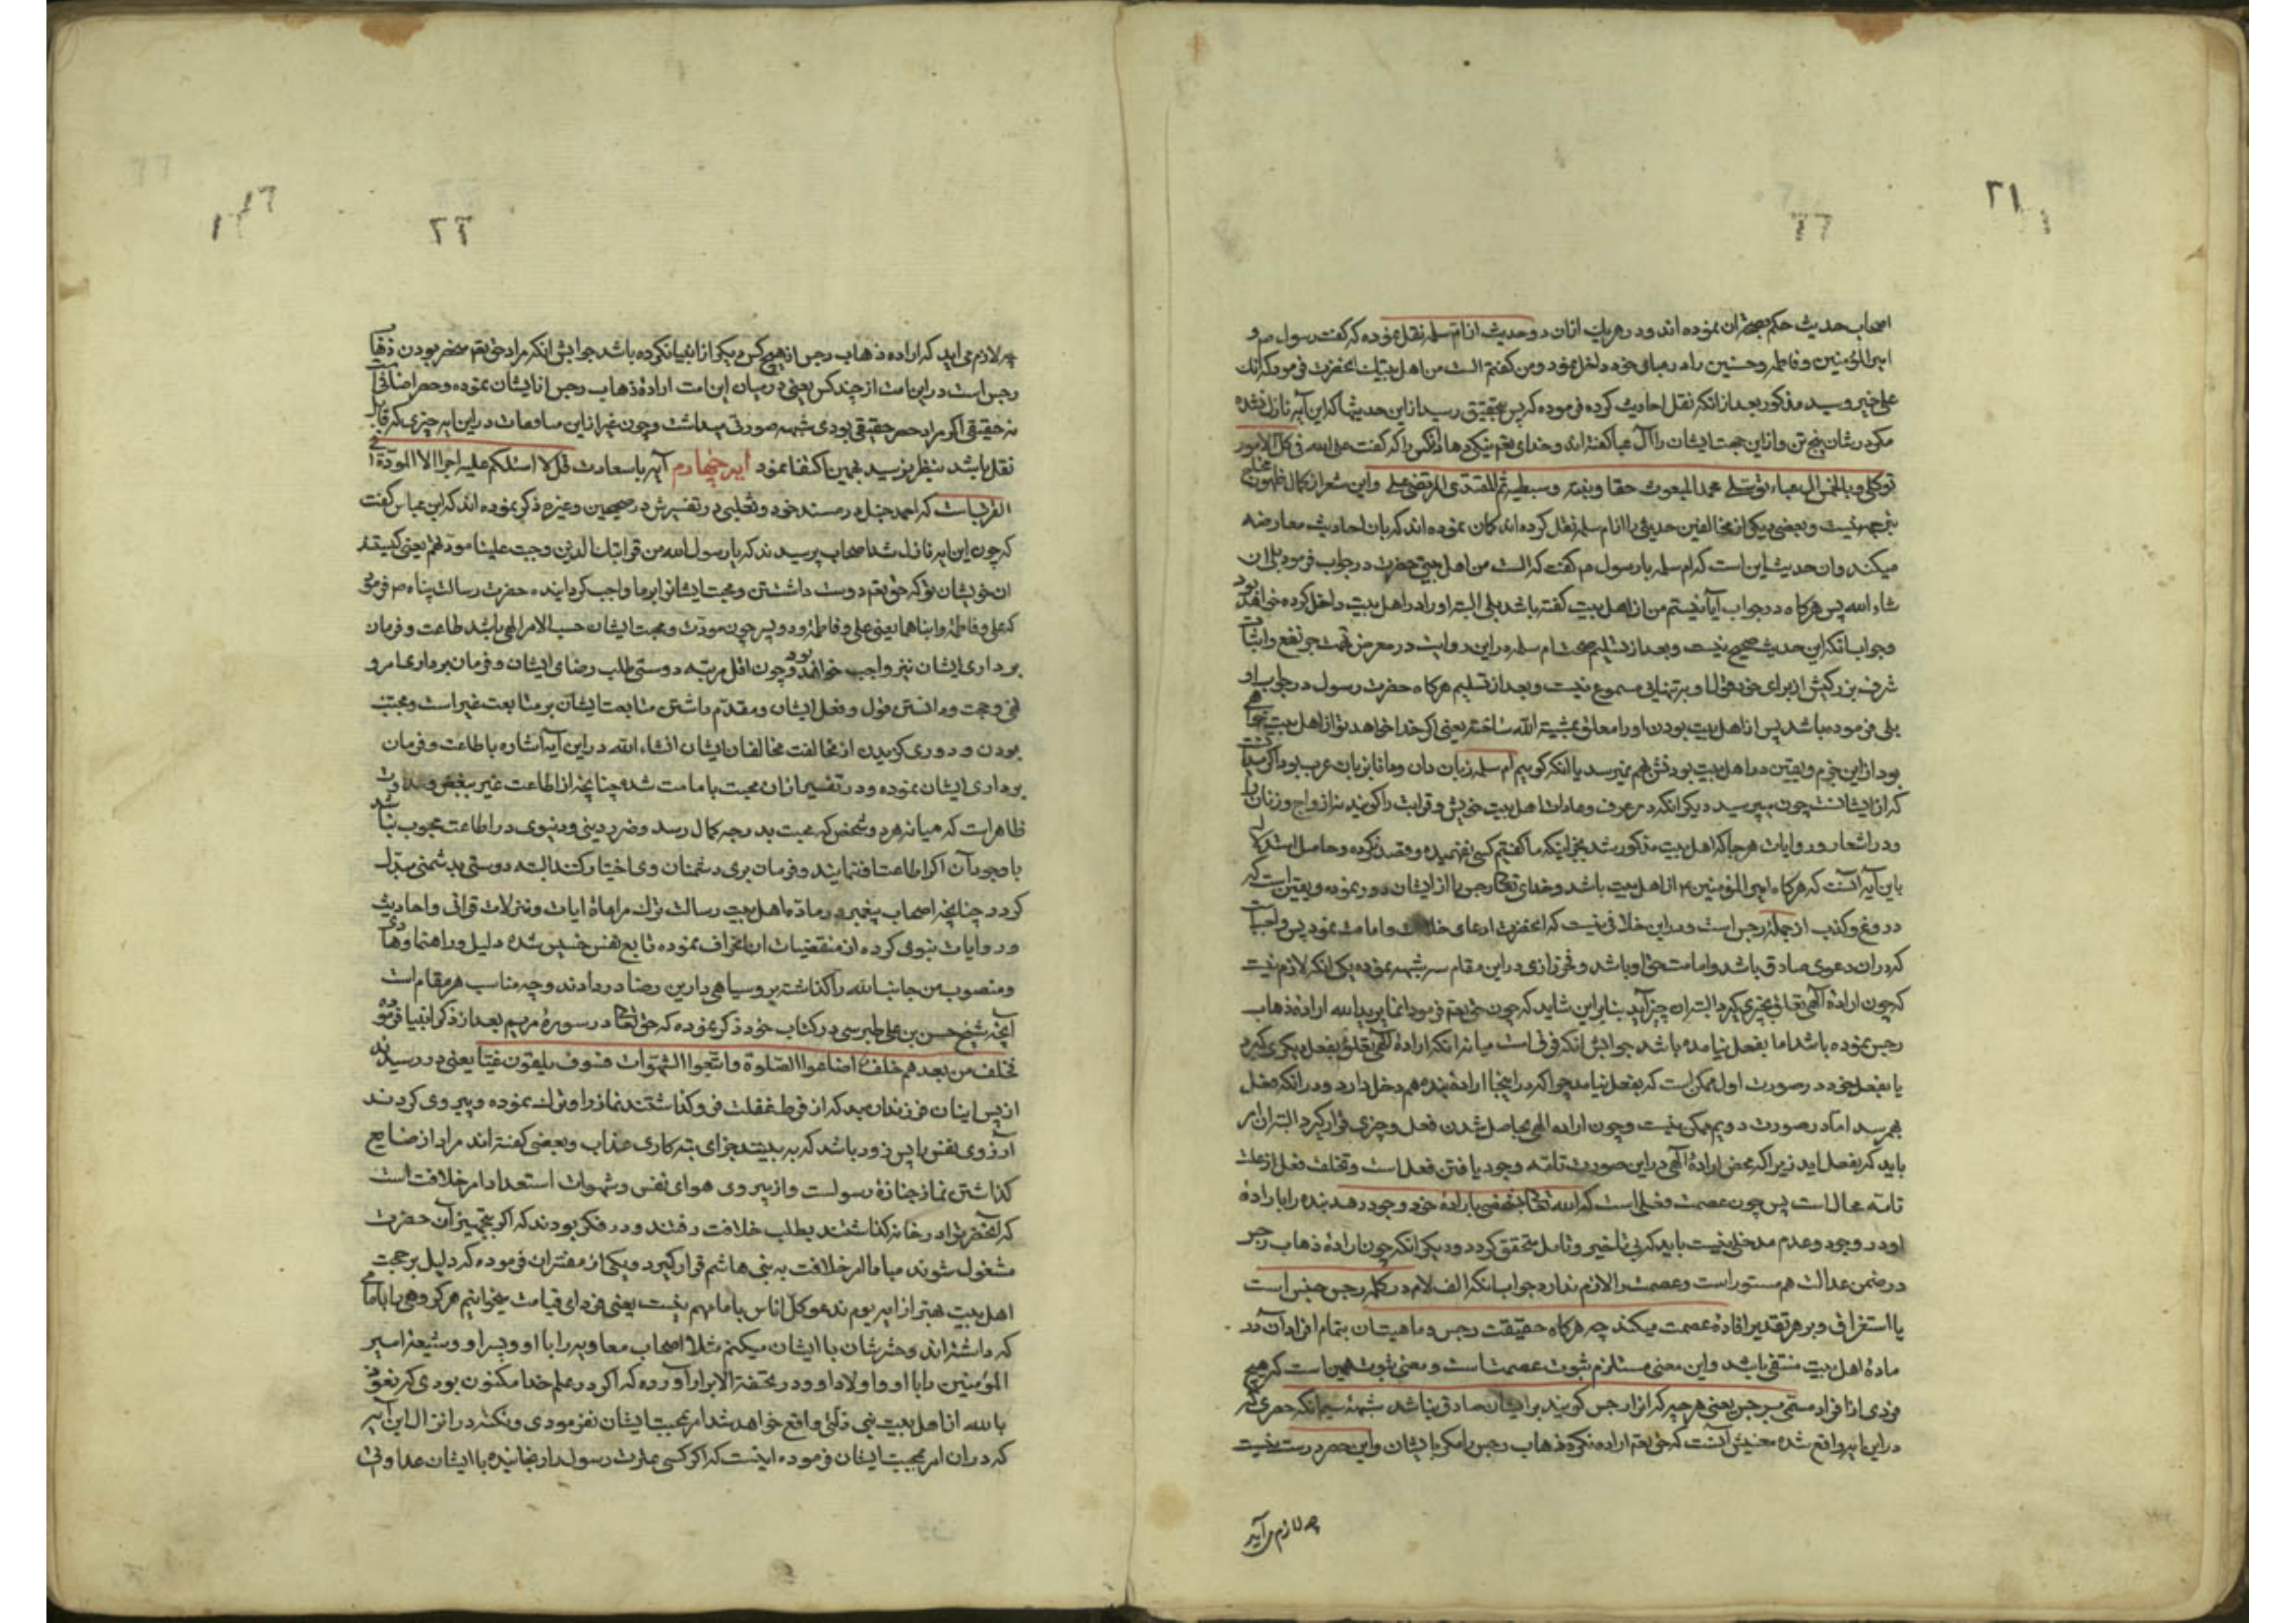 ۲۱
اصحاب حدیث حکم بصحة آن نموده‌اند و در هر یک ازان دو حدیث از ام سلمه نقل نموده که گفت رسول ص و
امیرالمؤمنین و فاطمه و حسنین را در عبای خود داخل نمود و من گفتم الست من اهل بیتک انحضرت فرمود که انک
علی خیر و سید مذکور بعد از انکه نقل احادیث کرده فرموده که پس بتحقیق رسید از این حدیثها که این آیه نازل نشده
مکر در شان پنج تن و از این جهت ایشان را آل عبا گفته‌اند و خدای تعم نیکی دهاد انکس را که گفت علی الله فی کل الامور
توکلی و بالخمس ال عباء توسلی محمد المبعوث حقا و بنته و سبطیه ثم المقتدی المرتضی علی و این شعر از کمال ظهور محتاج
بترجمه نیست و بعضی دیکر از مخالفین حدیثی را از ام سلمه نقل کرده‌اند کمان نموده‌اند که بان احادیث معارضه
میکند و ان حدیث این است که ام سلمه با رسول ص گفت که الست من اهل بیتی حضرت در جواب فرمود بلی ان
شاء الله پس هرکاه در جواب آیا نیستم من از اهل بیت گفته باشد بلی البته او را در اهل بیت داخل کرده خواهد بود
و جواب انکه این حدیث صحیح نیست و بعد از تسلیم صحت ام سلمه در این روایت در معرض تهمت جر نفع و اثبات
شرف بزرکیش از برای خود قول او بتنهائی مسموع نیست و بعد از تسلیم هرکاه حضرت رسول در جواب او
بلی فرموده باشد پس از اهل بیت بودن او را معلق بمشیة الله ساخته یعنی اکر خدا خواهد تو از اهل بیت خواهی
بود از این جزم و یقین در اهل بیت بودنش بهم نمیرسد یا انکه کوییم ام سلمه زبان دان و دانا بزبان عرب بود اکر میدانست
که از ایشانست چون میپرسید دیکر انکه در عرف و عادات اهل بیت خویش و قرابت را کویند نه ازواج و زنان را
و در اشعار و روایات هرجا که اهل بیت مذکور شد بجز اینکه ما گفتیم کسی نفهمیده و قصد نکرده و حاصل استدلال
باین آیه آنست که هرکاه امیرالمؤمنین ع از اهل بیت باشد و خدای تعالی رجس را از ایشان دور نموده و یقین است که
دروغ و کذب از جمله رجس است و در این خلافی نیست که انحضرت ادعای خلافت و امامت نمود پس واجبست
که در ان دعوی صادق باشد و امامت حق او باشد و فخر رازی در این مقام سه شبهه نموده یکی انکه لازم نیست
که چون اراده الهی تعلق بچیزی کیرد البته ان چیز آید بنابراین شاید که چون حق تعم فرمود انما یرید الله اراده ذهاب
رجس نموده باشد اما بفعل نیامده باشد جوابش انکه فرق است میانه انکه اراده الهی تعلق بفعل دیکری کیرد
یا بفعل خود در صورت اول ممکن است که بفعل نیاید چرا که در اینجا اراده بنده هم دخل دارد و در انکه فعل
بهم رسد اما در صورت دویم ممکن نیست و چون اراده الهی بحاصل شدن فعل و چیزی قرار کیرد البته ان امر
باید که بفعل اید زیرا که محض اراده الهی در این صورت علت تامه وجود یافتن فعل است و تخلف فعل از علت
تامه محال است پس چون عصمت فعلی است که الله تعالی بشخصی باراده خود وجود دهد بنده را با اراده
او در وجود و عدم مدخلی نیست باید که بی تاخیر و تامل متحقق کردد و دیکر انکه چون اراده ذهاب رجس
در ضمن عدالت هم مستور است و عصمت را لازم ندارد جواب انکه الف لام در کلمه رجس جنس است
یا استغراق و بر هر تقدیر افاده عصمت میکند چه هرکاه حقیقت رجس و ماهیت ان بتمام افراد آن در
ماده اهل بیت منتفی باشد و این معنی مستلزم ثبوت عصمت است و معنی ثبوت همین است که هیچ
فردی از افراد مسمی برجس یعنی هرچیز که انرا رجس کویند بر ایشان صادق نباشد شبهه سیم انکه حصری که
در این ایه واقع شده معنیش آنست که حق تعم اراده نکرده ذهاب رجس را مکر با ایشان و این حصر درست نیست
چه لازم می آید
۲۲
چه لازم می‌اید که اراده ذهاب رجس از هیچ کس دیکر از انبیا نکرده باشد جوابش انکه مراد حق تعم منحصر بودن ذهاب
رجس است در این امت از چند کس یعنی در میان این امت اراده ذهاب رجس از ایشان نموده و حصر اضافی است
نه حقیقی اکر مراد حصر حقیقی بودی شبهه صورتی میداشت و چون غیر از این مسامعات در این ایه چیزی که قابل
نقل باشد بنظر نرسید بهمین اکتفا نمود آیه چهارم آیه با سعادت قل لا اسئلکم علیه اجرا الا المودة فی
القربی است که احمد حنبل در مسند خود و ثعلبی در تفسیرش در صحیحین و غیره ذکر نموده‌اند که ابن عباس گفت
که چون این ایه نازل شد اصحاب پرسیدند که یا رسول الله من قرابتک الذین وجبت علینا مودتهم یعنی کیستند
ان خویشان تو که حق تعم دوست داشتن و محبت ایشانرا بر ما واجب کردانیده حضرت رسالت پناه ص فرمود
که علی و فاطمة و ابناهما یعنی علی و فاطمه و دو پسر چون مودت و محبت ایشان حسب الامر الهی باشد طاعت و فرمان
برداری ایشان نیز واجب خواهد بود و چون اقل مرتبه دوستی طلب رضای ایشان و فرمان برداری امر و
نهی و حجت دانستن قول و فعل ایشان و مقدم داشتن متابعت ایشان بر متابعت غیر است و مجتنب
بودن و دوری کزیدن از مخالفت مخالفان ایشان انشاء الله در این آیه اشاره باطاعت و فرمان
برداری ایشان نموده و در تفسیر ازان محبت بامامت شده چنانچه از اطاعت غیر ببغض و عداوت
ظاهر است که میانه هر دو شخص که محبت بدرجه کمال رسد و ضرر دینی و دنیوی در اطاعت محبوب نباشد
با وجود آن اکر اطاعت او ننمایند و فرمان بری دشمنان وی اختیار کنند البته دوستی بدشمنی مبدل
کردد چنانچه اصحاب پیغمبر در ماده اهل بیت رسالت ترک مراعاة ایات و تنزلات قرانی و احادیث
و روایات نبوی کرده از مقتضیات ان انحراف نموده تابع نفس خسیس شده دلیل و راهنما و هادی
و منصوب من جانب الله را کذاشته بروسیاهی دارین رضا در دادند و چه مناسب هر مقام است
آنچه شیخ حسن بن علی طبرسی در کتاب خود ذکر نموده که حق تعالی در سوره مریم بعد از ذکر انبیا فرموده
فخلف من بعدهم خلف اضاعوا الصلوة و اتبعوا الشهوات فسوف یلقون غیا یعنی در رسیدند
از پس اینان فرزندان بد که از فرط غفلت فرو کذاشتند نماز را و ترک نموده و پیروی کردند
آرزوی نفس را پس زود باشد که به بینند جزای تبه کاری عذاب و بعضی گفته‌اند مراد از ضایع
کذاشتن نماز جنازه رسولست و از پیروی هوای نفس و شهوات استعداد امر خلافت است
که انحضرترا در خانه کذاشتند بطلب خلافت رفتند و در فکر بودند که اکر بتجهیز آن حضرت
مشغول شوند مبادا امر خلافت به بنی هاشم قرار کیرد و یکی از مفسران فرموده که دلیل بر محبت
اهل بیت بهتر از ایه یوم ندعو کل اناس بامامهم نیست یعنی فردای قیامت بخوانیم هر کروهی را با امامی
که داشته‌اند و حشرشان با ایشان میکنم مثلا اصحاب معاویه را با او و پسر او و شیعه امیر
المؤمنین را با او و اولاد او و در تحفة الابرار آورده که اکر در علم خدا مکنون بودی که نعوذ
بالله از اهل بیت نبی زلتی واقع خواهد شد امر بمحبت ایشان نفرمودی و نکته در انزال این آیه
که در ان امر بمحبت ایشان فرموده اینست که اکر کسی عترت رسول را رنجانیده با ایشان عداوتی